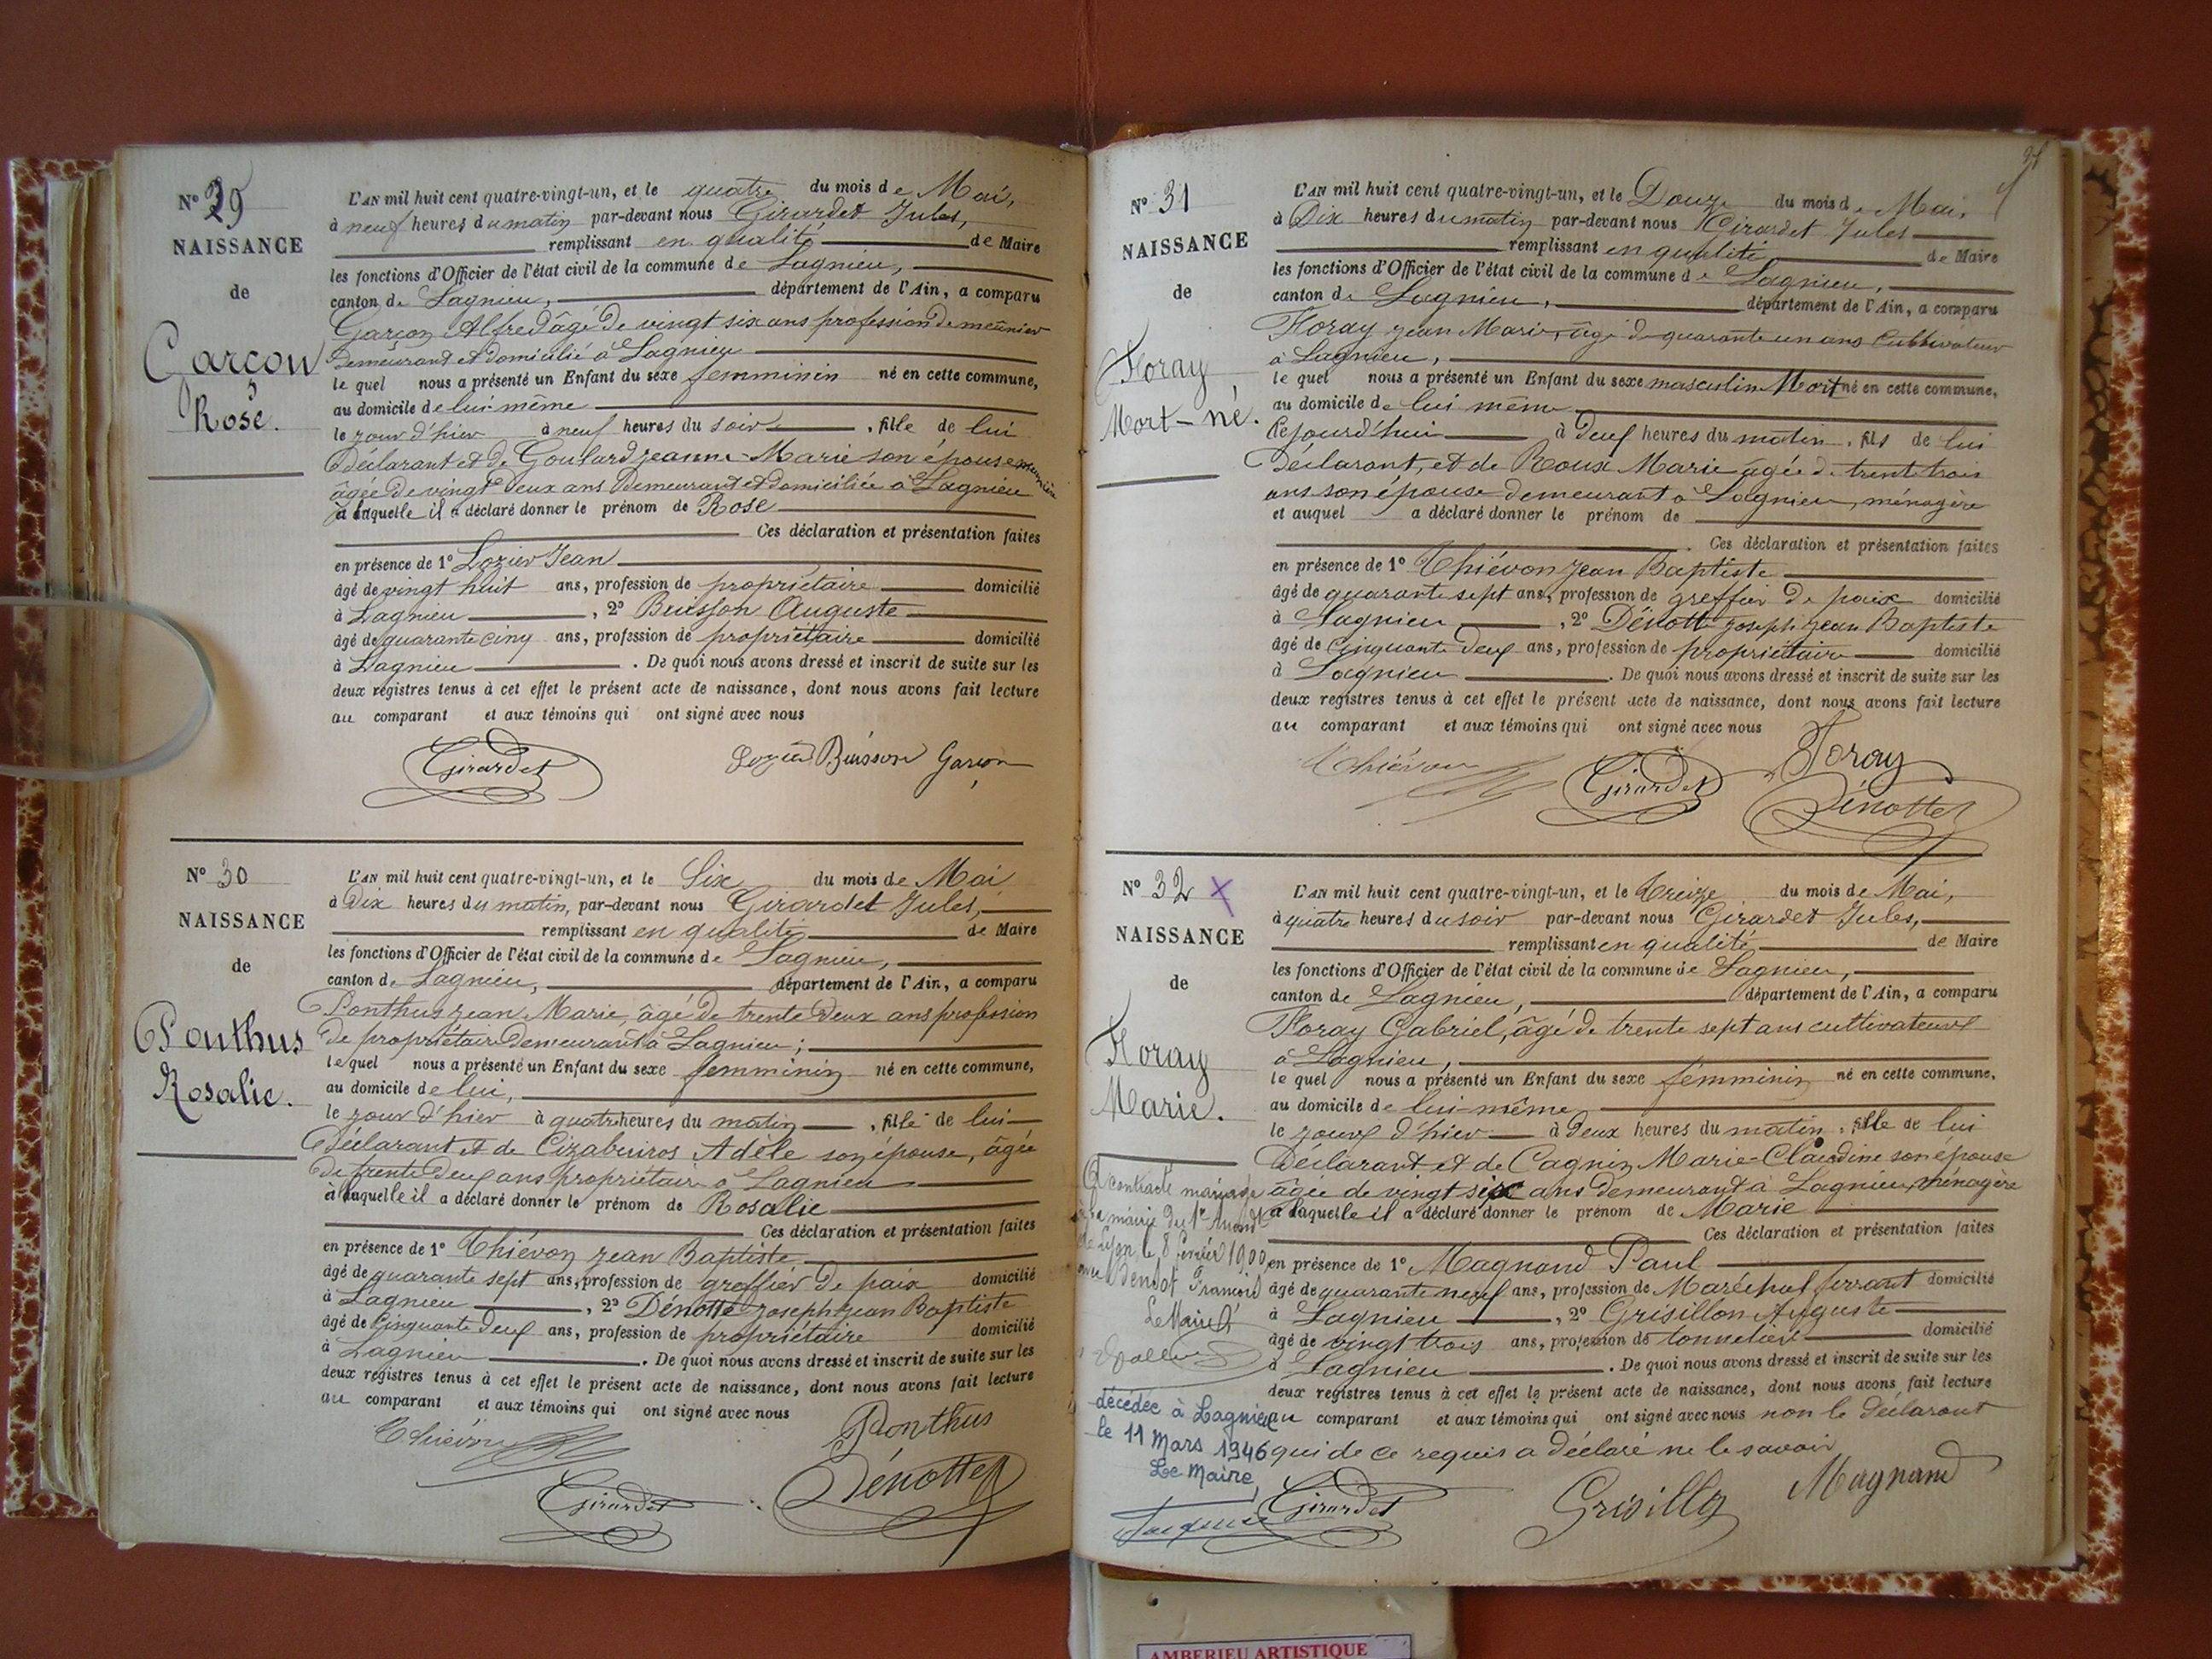 Nº 29
NAISSANCE
de
Garçon
Rose.
L'AN mil huit cent quatre-vingt-un, et le quatre du mois de Mai,
à neuf heures du matin par-devant nous Girardet Jules,
remplissant en qualité de Maire
les fonctions d'Officier de l'état civil de la commune de Lagnieu,
canton de Lagnieu, département de l'Ain, a comparu
Garçon Alfred âgé de vingt six ans profession de meûnier
demeurant et domicilié à Lagnieu
le quel nous a présenté un Enfant du sexe femminin né en cette commune,
au domicile de lui même
le jour d'hier à neuf heures du soir, fille de lui
déclarant et de Goulard Jeanne Marie son épouse meunière
âgée de vingt deux ans demeurant et domiciliée à Lagnieu
à laquelle il a déclaré donner le prénom de Rose
Ces déclaration et présentation faites
en présence de 1º Lozier Jean
âgé de vingt huit ans, profession de propriétaire domicilié
à Lagnieu, 2º Buisson Auguste
âgé de quarante cinq ans, profession de propriétaire domicilié
à Lagnieu. De quoi nous avons dressé et inscrit de suite sur les
deux registres tenus à cet effet le présent acte de naissance, dont nous avons fait lecture
au comparant et aux témoins qui ont signé avec nous
Girardet Buisson Garçon
Nº 30
NAISSANCE
de
Ponthus
Rosalie.
L'AN mil huit cent quatre-vingt-un, et le Six du mois de Mai
à Dix heures du matin, par-devant nous Girardet Jules,
remplissant en qualité de Maire
les fonctions d'Officier de l'état civil de la commune de Lagnieu,
canton de Lagnieu, département de l'Ain, a comparu
Ponthus Jean Marie, âgé de trente deux ans profession
de propriétaire demeurant à Lagnieu;
le quel nous a présenté un Enfant du sexe femminin né en cette commune,
au domicile de lui,
le jour d'hier à quatre heures du matin, fille de lui
déclarant et de Adèle son épouse, âgée
de trente deux ans propriétaire à Lagnieu
et à laquelle il a déclaré donner le prénom de Rosalie
Ces déclaration et présentation faites
en présence de 1º Thiévon Jean Baptiste
âgé de quarante sept ans, profession de greffier de paix domicilié
à Lagnieu, 2º Dénotte Joseph Jean Baptiste
âgé de Cinquante deux ans, profession de propriétaire domicilié
à Lagnieu. De quoi nous avons dressé et inscrit de suite sur les
deux registres tenus à cet effet le présent acte de naissance, dont nous avons fait lecture
au comparant et aux témoins qui ont signé avec nous
Thiévon Ponthus
Girardet Dénotte
Nº 31
NAISSANCE
de
Floray
Mort-né.
L'AN mil huit cent quatre-vingt-un, et le Douze du mois de Mai,
à Dix heures du matin par-devant nous Girardet Jules
remplissant en qualité de Maire
les fonctions d'Officier de l'état civil de la commune de Lagnieu,
canton de Lagnieu, département de l'Ain, a comparu
Floray Jean Marie, âgé de quarante un ans Cultivateur
à Lagnieu,
le quel nous a présenté un Enfant du sexe masculin Mort né en cette commune,
au domicile de lui même
le jourd'hui à deux heures du matin, fils de lui
Déclarant, et de Roux Marie âgée de trente trois
ans son épouse demeurant à Lagnieu, ménagère
et auquel a déclaré donner le prénom de
Ces déclaration et présentation faites
en présence de 1º Thiévon Jean Baptiste
âgé de quarante sept ans, profession de greffier de paix domicilié
à Lagnieu, 2º Dénotte Joseph Jean Baptiste
âgé de Cinquante deux ans, profession de propriétaire domicilié
à Lagnieu. De quoi nous avons dressé et inscrit de suite sur les
deux registres tenus à cet effet le présent acte de naissance, dont nous avons fait lecture
au comparant et aux témoins qui ont signé avec nous
Thiévon Girardet Floray
Dénotte
Nº 32
NAISSANCE
de
Floray
Marie.
L'AN mil huit cent quatre-vingt-un, et le treize du mois de Mai,
à quatre heures du soir par-devant nous Girardet Jules,
remplissant en qualité de Maire
les fonctions d'Officier de l'état civil de la commune de Lagnieu,
canton de Lagnieu, département de l'Ain, a comparu
Floray Gabriel, âgé de trente sept ans cultivateur
à Lagnieu,
le quel nous a présenté un Enfant du sexe femminin né en cette commune,
au domicile de lui-même
le jour d'hier à deux heures du matin, fille de lui
Déclarant et de Cagnin Marie-Claudine son épouse
âgée de vingt six ans demeurant à Lagnieu, ménagère
à laquelle il a déclaré donner le prénom de Marie
Ces déclaration et présentation faites
en présence de 1º Magnand Paul
âgé de quarante neuf ans, profession de Maréchal ferrant domicilié
à Lagnieu, 2º Grisillon Auguste
âgé de vingt trois ans, profession de tonnelier domicilié
à Lagnieu. De quoi nous avons dressé et inscrit de suite sur les
deux registres tenus à cet effet le présent acte de naissance, dont nous avons fait lecture
au comparant et aux témoins qui ont signé avec nous non le déclarant
qui de ce requis a déclaré ne le savoir
Girardet Magnand
A contracté mariage
à la mairie du 1er Arrondt
de Lyon, le 8 février 1900
avec François
Le Maire,
décédée à Lagnieu
le 11 Mars 1946
Le Maire,
AMBERIEU ARTISTIQUE